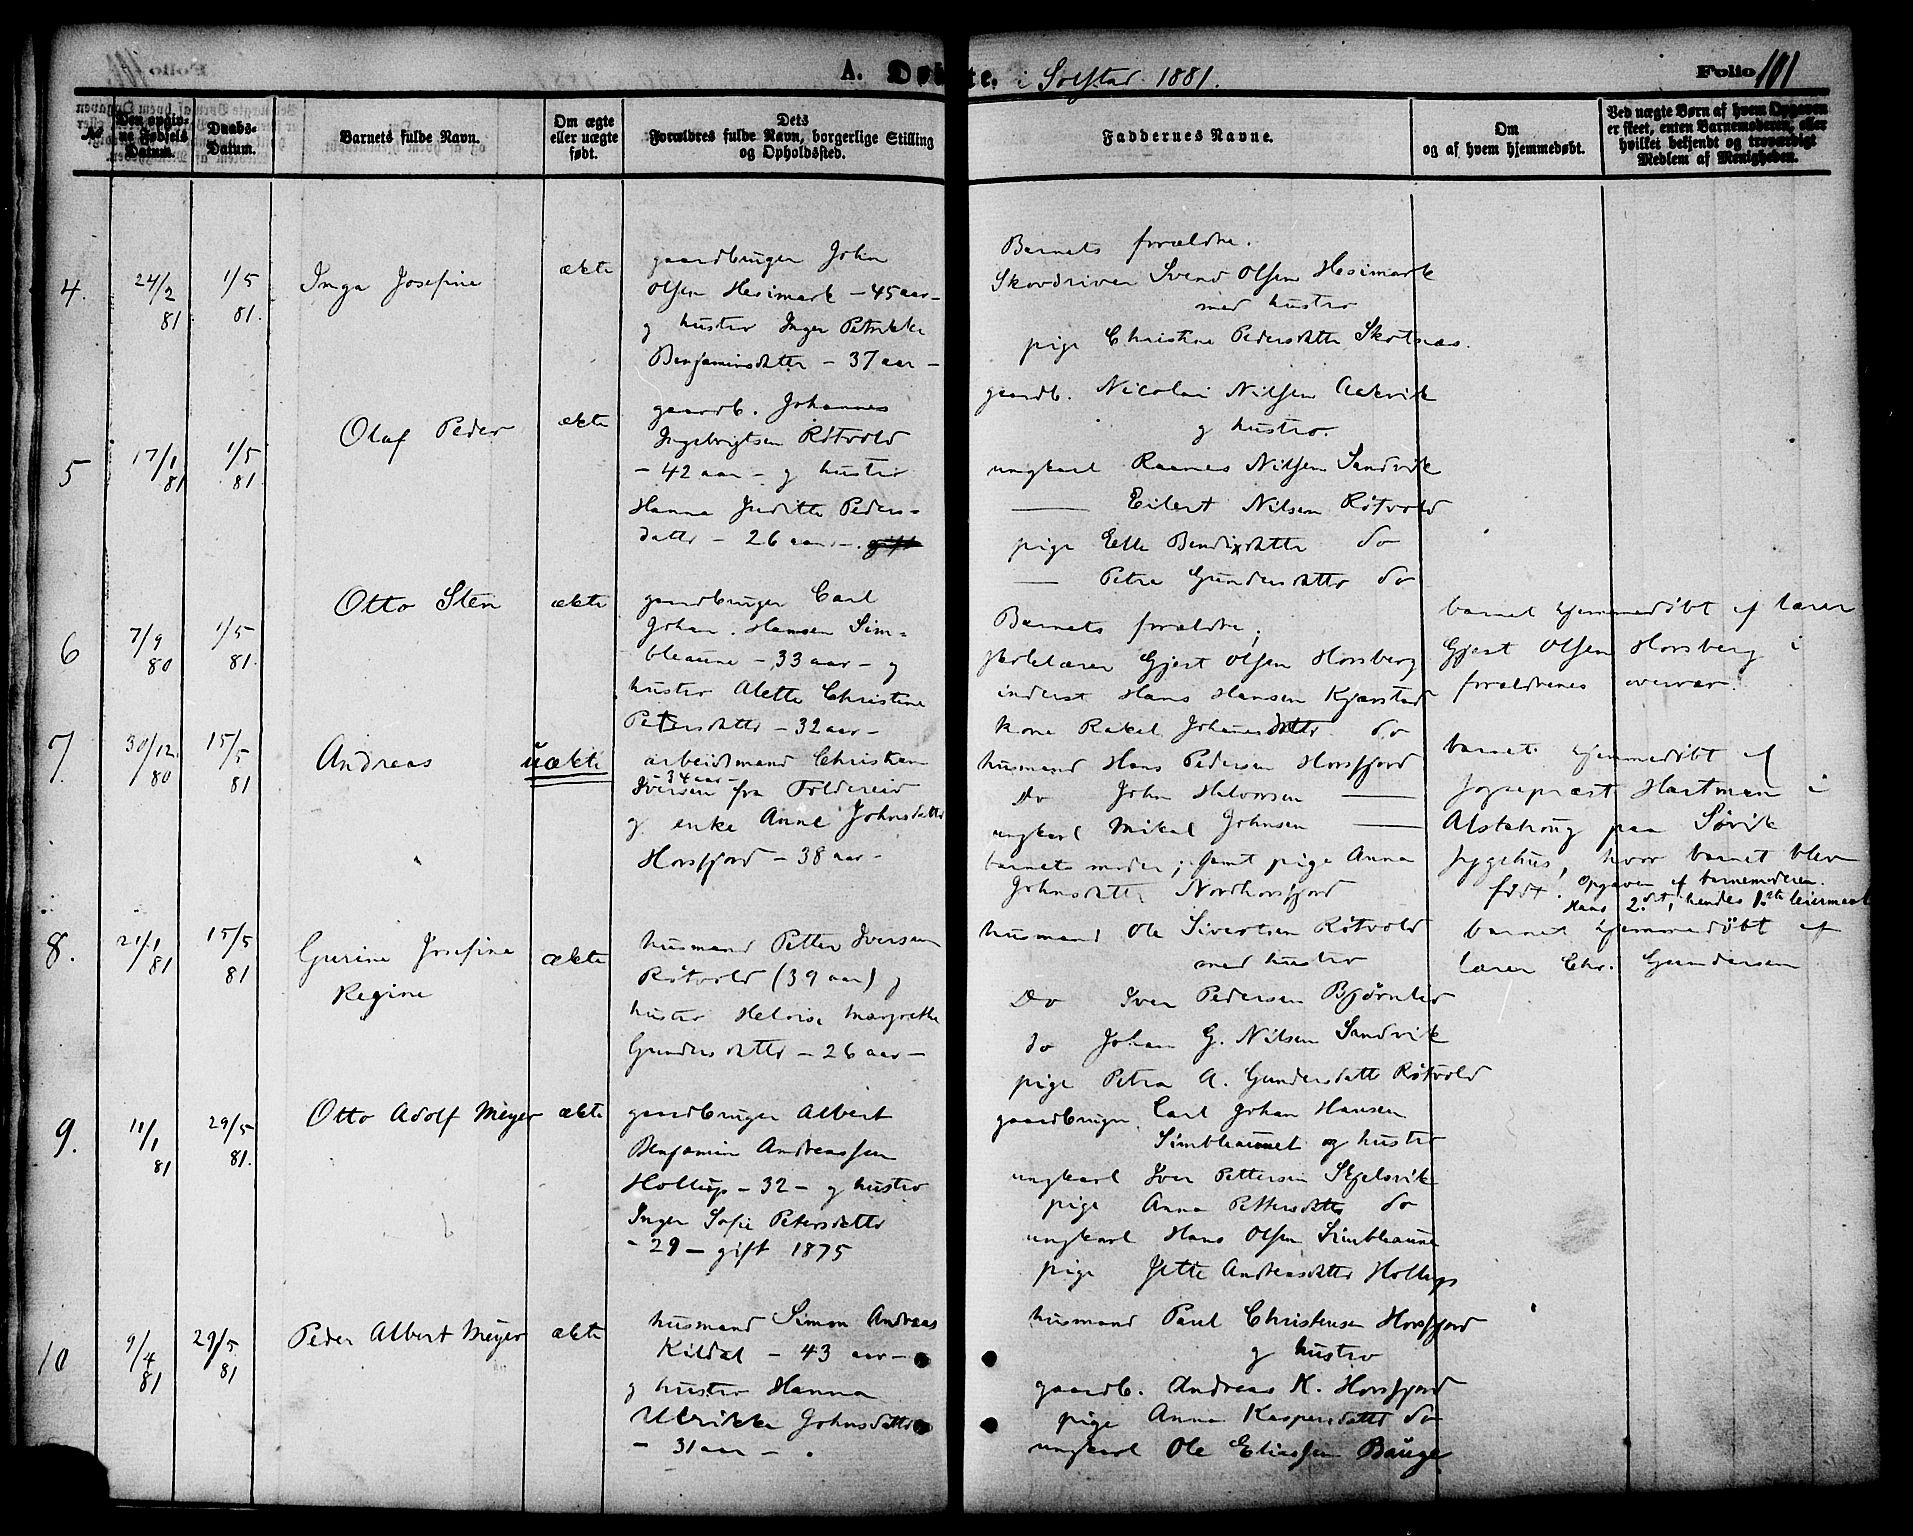 A. Døbte. i Solstad 1881.
Folio 101
No
Den opgivne Fødsels Datum.
Daabs-Datum.
Barnets fulde Navn.
Om ægte eller uægte født.
Dets Forældres fulde Navn, borgerlige Stilling og Opholdssted.
Faddernes Navne.
Om og af hvem hjemmedøbt.
Ved uægte Børn af hvem Opgaven er skeet, enten Barnemoderen, eller hvilket bekjendt og troværdigt Medlem af Menigheden.
4. 24/2 81 1/5 81. Inga Josefine ækte
gaardbruger John
Olsen Hesimark - 45 aar -
g hustro Inger Petrikke
Benjaminsdatter - 37 aar -
Barnets forældre.
Skovdriver Svend Olsen Hesimark
med hustro
pige Christine Pedersdatter Skotnes.
5 17/1 81 1/5 81. Olaf Peder ækte
gaardb. Johannes
Ingebrigtsen Røtvold
- 42 aar - g hustro
Hanna Juditte Peders-
datter - 26 aar -. gift
gaardb. Nicolai Nilsen Aakvik
g hustro.
ungkarl Raanes Nilsen Sandvik
—— Eilert Nilsen Røtvold
pige Elle Bendixdatter do
— Petra Gundersdatter do
6 7/9 80 1/5 81. Otto Sten ækte
gaardbruger Carl
Johan. Hansen Sim-
bleaune - 33 aar - g
hustro Alette Christine
Petersdatter - 32 aar -
Barnets forældre;
skolelærer Gjert Olsen Horsberg
inderst Hans Hansen Kjærstad
kone Rakel Johannesdatter do
barnet hjemmedøbt af lærer
Gjert Olsen Horsberg i
forældrenes overvær.
7. 30/12. 80 15/5 81 Andreas uækte
arbeidsmand Christian
- 34 aar -
Iversen fra Foldereid
g enke Anne Johnsdatter
Horsfjord - 38 aar -
husmand Hans Pedersen Horsfjord
Do John Halvorsen ——
ungkarl Mikal Johnsen ——
barnets moder; samt pige Anna
Johnsdatter Nordhorsfjord
barnet hjemmedøbt af
sogneprest Hartman i
Alstahoug paa Søvik
sygehus, hvor barnet blev
født. Opgaven af barnemoderen.
Hans 2.det, hendes 1.ste leiermaal
8. 21/1 81 15/5 81 Gurine Josefine ækte
Regine
husmand Petter Iversen
Røtvold (39 aar) g
hustro Heloise Margrethe
Gundersdatter - 26 aar -
husmand Ole Sivertsen Røtvold
med hustro
Do Iver Pedersen Bjørnlid
do Johan G. Nilsen Sandvik
pige Petra A. Gundersdatt Røtvold
barnet hjemmedøbt af
lærer Chr. Gundersen
9. 11/1 81 29/5 81. Otto Adolf Meyer ækte
gaardbruger Albert
Benjamin Andreassen
Hollup - 32 - g hustro
Inger Sofie Petersdatter
- 29 - gift 1875
gaardbruger. Carl Johan Hansen
Simbleaunet og hustro
ungkarl Iver Pettersen Skjelsvik
pige Anna Pettersdatter do
ungkarl Hans Olsen Simbleaune
pige Jette Andreasdatter Hollup
10 9/4 81 29/5 81 Peder Albert Meyer ækte
husmand Simon Andreas
Kildal - 43 aar -
g hustro Hanna
Ulrikke Johnsdatter
- 31 aar - .
husmand Paul Christensen Horsfjord
g hustro
gaardb. Andreas K. Horsfjord
pige Anna Kaspersdatter do
ungkarl Ole Eliassen Bauge